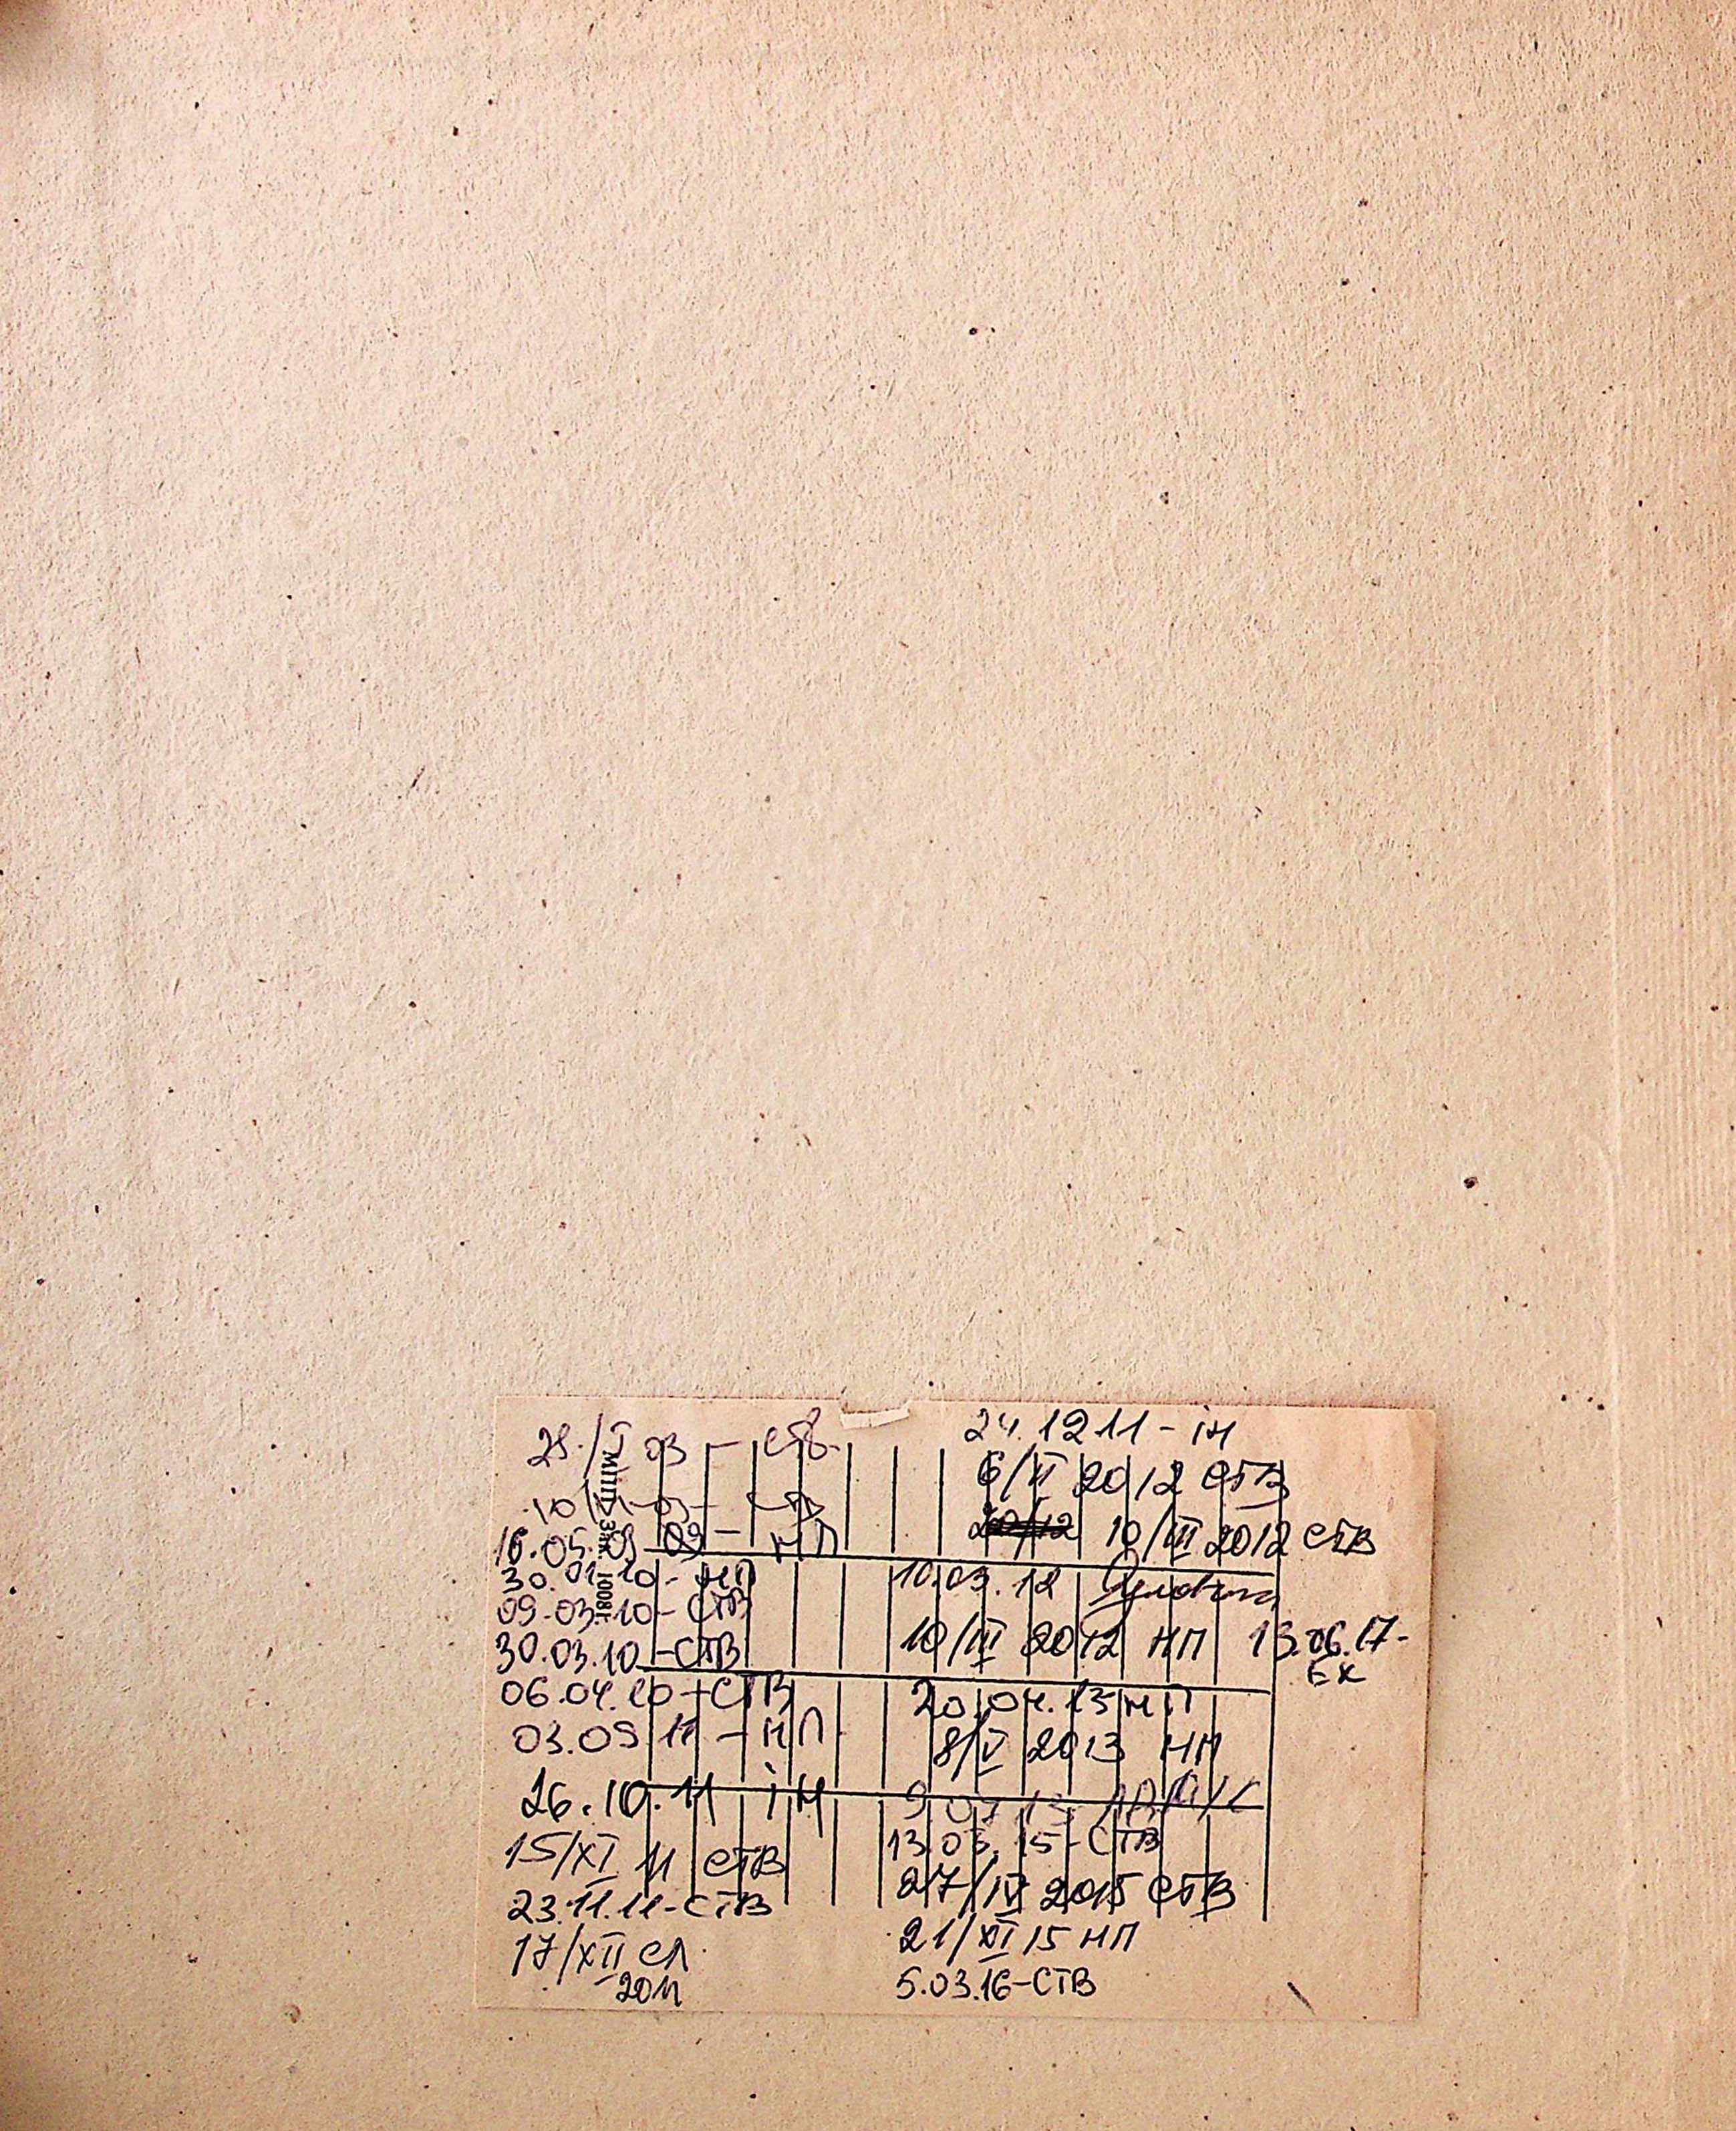 03 - ств.
16.05.09 09 - НП
30.01.10 - НП
09.03.10 - СТВ
30.03.10 - СТВ
06.04.10 - СТВ
03.09.11 - НП
26.10.11 ін
15/XI 11 СТВ
23.11.11 - СТВ
17/XII ел.
2011
24.12.11 - ін
6/II 2012 СТВ
10/III 2012 СТВ
10.03.12
10/III 2012 НП
20.04.13 НП
8/V 2013 НП
13.03.15 - СТВ
27/IV 2015 СТВ
21/XI 15 НП
5.03.16 - СТВ
13.06.17 -
ЕК
МПП Зак. 10081